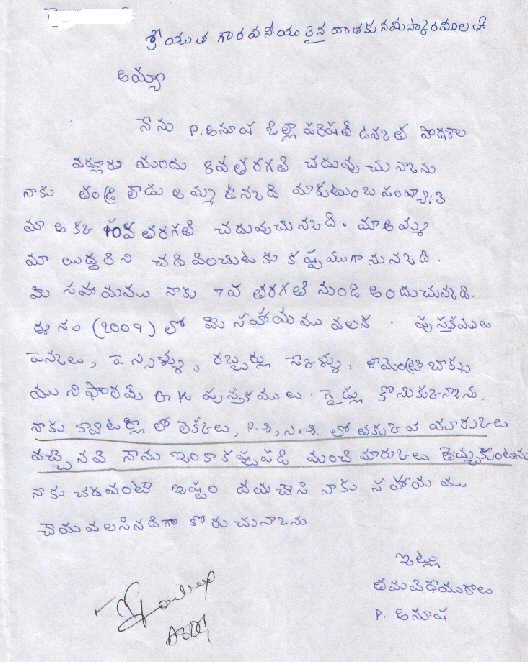 శ్రీయుత గౌరవనీయులైన దాతకు నమస్కారములతో
అయ్యా
నేను P.అనూష జిల్లా పరిషత్ ఉన్నత పాఠశాల
నందు 8వ తరగతి చదువుచున్నాను
నాకు తండ్రి లేడు అమ్మ ఉన్నది మా కుటుంబ సంఖ్య 3
మా అక్క 10వ తరగతి చదువుచున్నది. మా అమ్మ
మా ఇద్దరిని చదివించుటకు కష్టముగానున్నది.
మీ సహాయము నాకు 7వ తరగతి నుండి అందుచున్నది.
ఈ సం (2009) లో మీ సహాయము వలన పుస్తకములు
పెన్నులు, పెన్సిళ్ళు, రబ్బర్లు, జామెంట్రి బాక్సు
యునిఫారమ్ పుస్తకములు. గైడ్లు కొనుకున్నాను.
నాకు క్వార్టర్లీ లో లెక్కలు, P.S, N.S. లో తక్కువ మార్కులు
వచ్చినవి నాను ఇంకా కష్టపడి మంచి మార్కులు తెచ్చుకుంటాను
నాకు చదువంటే ఇష్టం దయచేసి నాకు సహాయము
చేయవలసినదిగా కోరుచున్నాను
ఇట్లు
తమ విధేయురాలు
P. అనూష